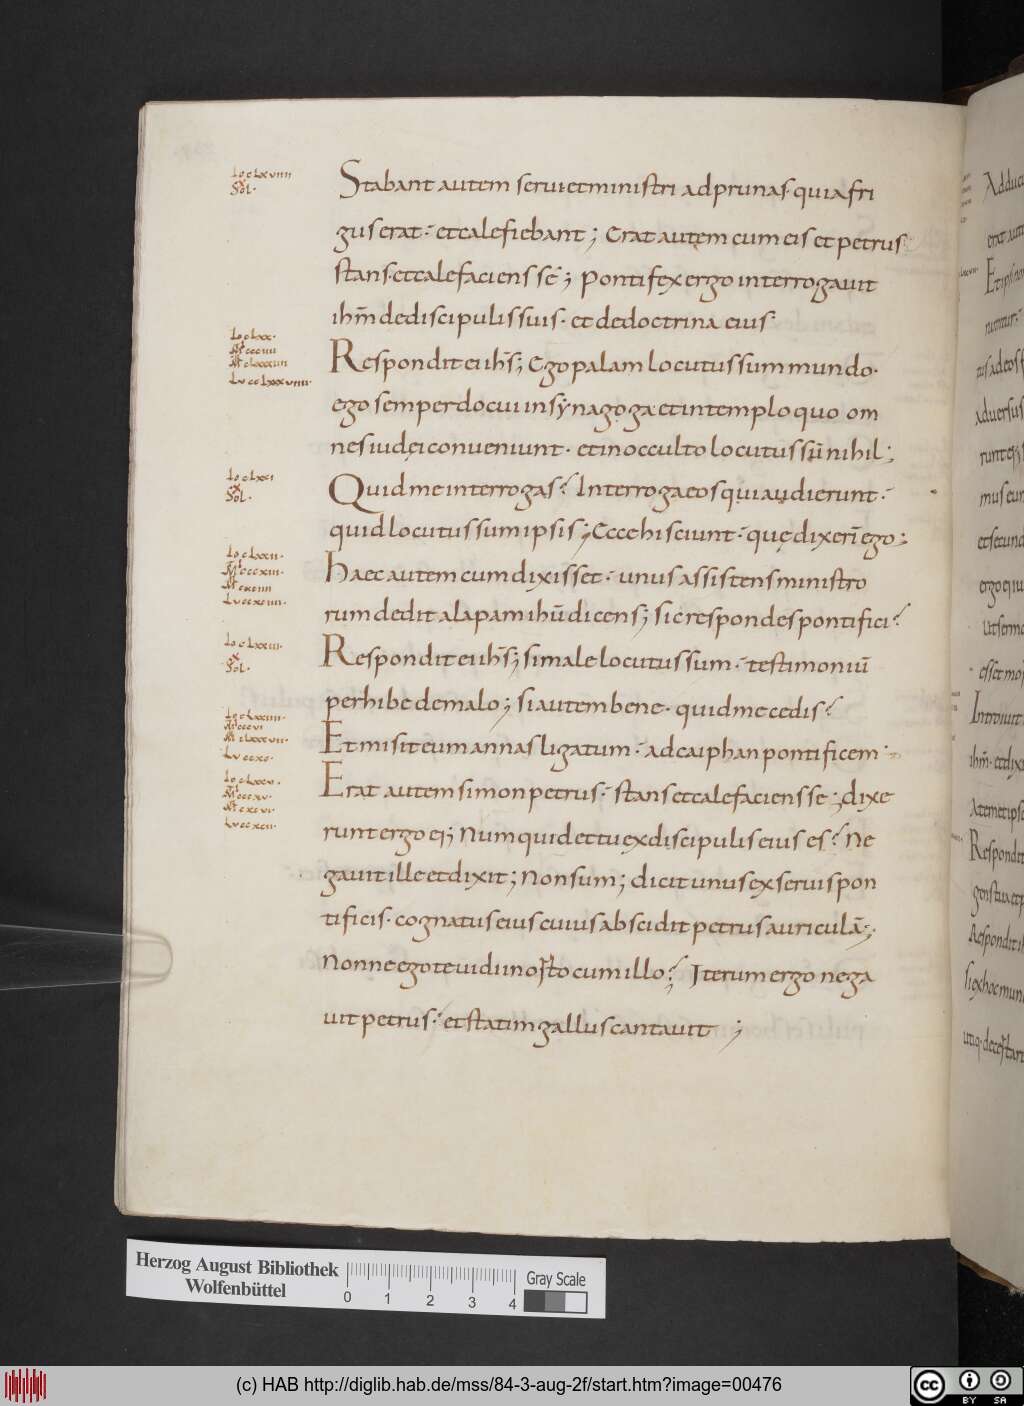 Io clxviiii
x
Sol·
Stabant autem serui et ministri ad prunas· quia fri
gus erat· et calefiebant; Erat autem cum eis et petrus
stans et calefaciens se; Pontifex ergo interrogauit
ihm̄ de discipulis suis· et de doctrina eius·
Io clxx·
Respondit ei ihs̄; Ego palam locutus sum mundo·
ego semper docui in synagoga et in templo quo om
nes iudęi conueniunt· et in occulto locutus sū nihil;
Io clxxi
x
Sol·
Quid me interrogas? Interroga eos qui audierunt·
quid locutus sum ipsis; Ecce hi sciunt· quę dixerī ego;
Io clxxii·
Haec autem cum dixisset· unus assistens ministro
rum dedit alapam ihū dicens; sic respondes pontifici?
Io clxxiii·
x
Sol·
Respondit ei ihs̄; si male locutus sum· testimoniū
perhibe de malo; si autem bene· quid me cedis?
Io clxxiiii·
Et misit eum annas ligatum· ad caiphan pontificem·
Io clxxv·
Erat autem simon petrus· stans et calefaciens se; dixe
runt ergo ei; Numquid et tu ex discipulis eius es? Ne
gauit ille et dixit; Non sum; dicit unus ex seruis pon
tificis· cognatus eius cuius abscidit petrus auriculā;
Nonne ego te uidi in orto cum illo? Iterum ergo nega
uit petrus· et statim gallus cantauit ;
Herzog August Bibliothek
Wolfenbüttel
0 1 2 3 4
Gray Scale
(c) HAB http://diglib.hab.de/mss/84-3-aug-2f/start.htm?image=00476
cc BY SA